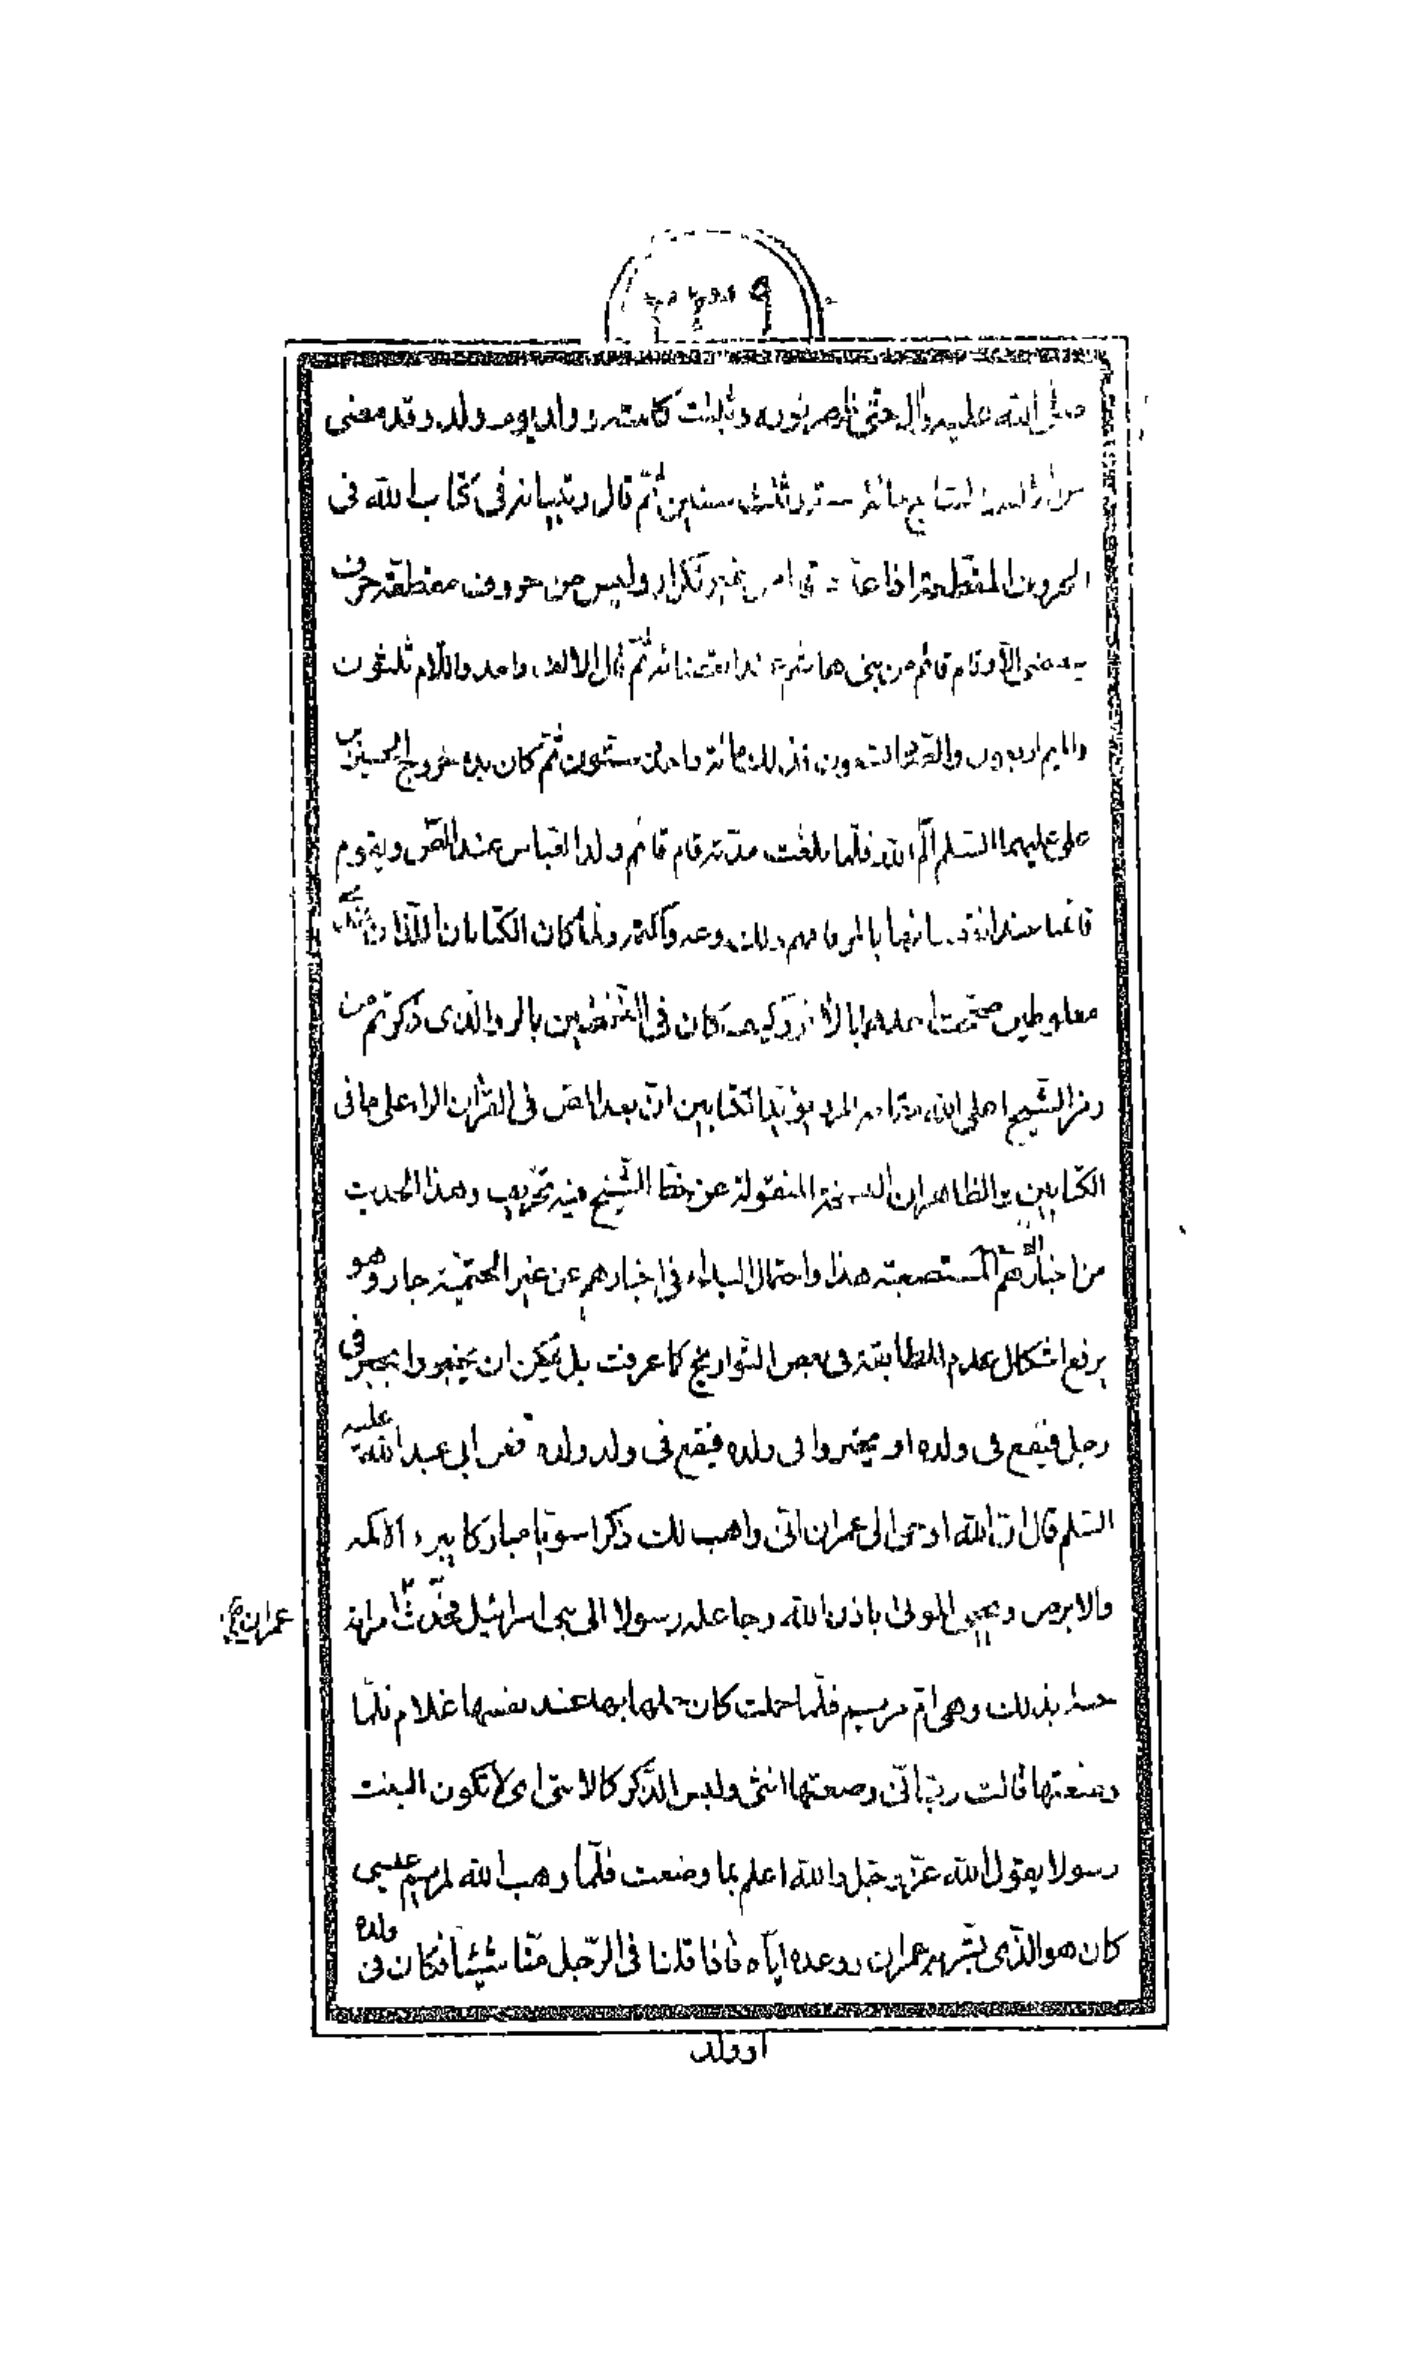 ٣٣٩
صلى الله عليه وآله حتى ظهر نوره وثبتت كلمته وولد يوم ولد وقد مضى
من الالف السابع مائة سنة وثلث سنين ثم قال وتبيانه فى كتاب الله فى
الحروف المقطعة اذا من غير تكرار وليس من حروف مقطعة حرف
ينقضى الا وقام قائم من بنى هاشم عند انقضائه ثم قال الالف واحد واللام ثلثون
والميم اربعون والصاد تسعون فذلك مائة واحد وستون ثم كان بدء خروج الحسين بن
على عليهما السلم الم الله فلما بلغت مدته قام قائم ولد العباس عند المص ويقوم
قائمنا عند انقضائها بالر فافهم ذلك وعه واكتمه ولما كان الكتابان اللذان
مغلوطين صححت احدهما بالاخر وكيف كان فى النسختين بالر والذى ذكرتم من
رمز الشيخ اعلى الله مقامه المر يؤيد الكتابين ان بعد المص فى القران الر على ما فى
الكتابين والظاهر ان النسخة المنقولة عن خط الشيخ فيه تحريف وهذا الحديث
من اخبارهم المستصعبة هذا واحتمال البداء فى اخبارهم عن غير الحتمية جار وهو
يرفع اشكال عدم المطابقة فى بعض التواريخ كما عرفت بل يمكن ان يخبروا بخبر فى
رجل فيقع فى ولده او يخبروا فى ولده فيقع فى ولد ولده فعن ابى عبد الله عليه
السلم قال ان الله اوحى الى عمران انى واهب لك ذكرا سويا مباركا يبرء الاكمه
والابرص ويحيى الموتى باذن الله وجاعله رسولا الى بنى اسرائيل فحدث امراته
عمران
حنة بذلك وهى ام مريم فلما حملت كان حملها بها عند نفسها غلام فلما
وضعتها قالت رب انى وضعتها انثى وليس الذكر كالانثى اى لا تكون البنت
رسولا يقول الله عز وجل والله اعلم بما وضعت فلما وهب الله لمريم عيسى
كان هو الذى بشر به عمران ووعده اياه فاذا قلنا فى الرجل منا شيئا فكان فى ولده
او ولد